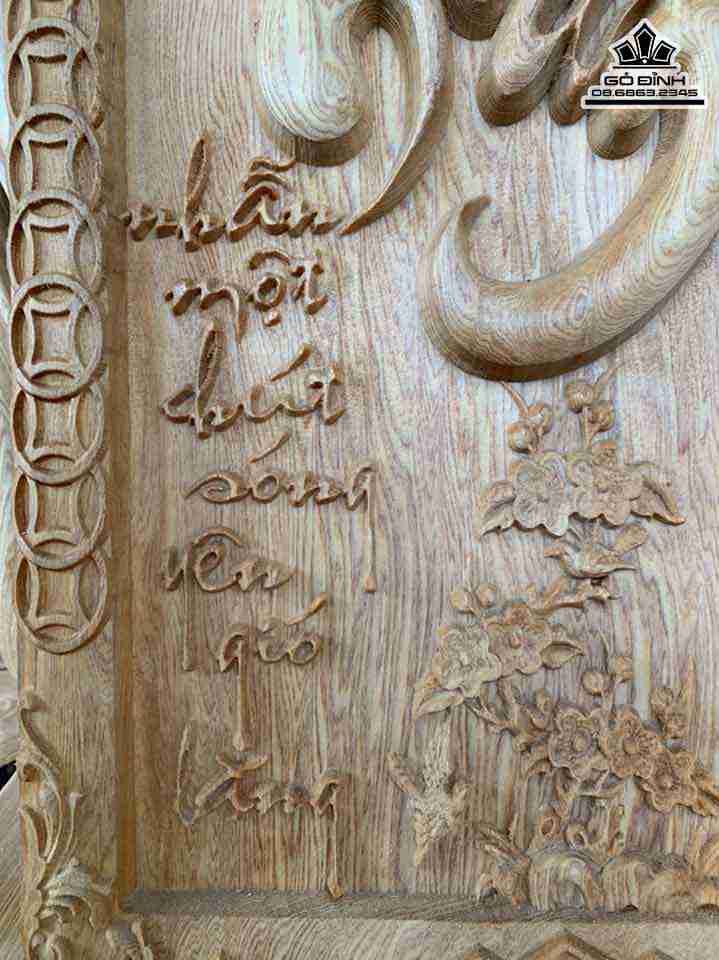 GỎ ĐỈNH
08.6863.2345
nhẫn
một
chút
sóng
yên
gió
lặng